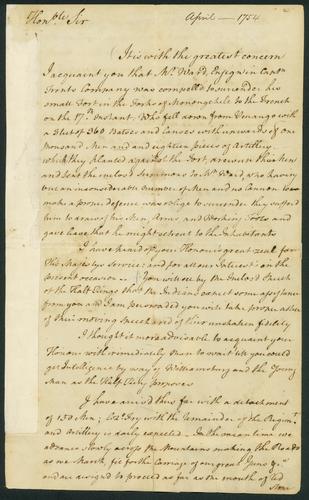 Hon.ble Sir April — 1754
It is with the greatest concern
I acquaint you that Mr. Ward, Ensign in Capn
Trents Company was compell'd to surrender his
small Fort in the Forks of Monongehele to the French
on the 17th Instant, Who fell down from Venango with
a Fleet of 360 Batoes and Canoes with upwards of one
thousand Men and and eighteen pieces of Artillery
which they planted against the Fort, drew up their Men
and sent the inclos'd Summons to Mr. Ward who having
but an inconsiderable number of Men and no Cannon to
make a proper defence was oblig'd to surrender they suffer'd
him to draw of his Men, Arms and Working Tools and
gave leave that he might retreat to the Inhabitants
I have heard of your Honour's great zeal for
His Majestys Service and for all our Interest's on the
present occasion — You will see by the inclos'd Speech
of the Half Kings that the Indians expect some assistance
from you and I am perswaded you will take proper notice
of their moving speech and of their unshaken fidelity
I thought it more adviseable to acquaint your
Honour with immediately than to wait till you could
get Intelligence by way of Williamsburg and the Young
Man as the Half King proposes
I have arriv'd thus far with a detachment
of 150 Men; Colo. Fry with the remainder of the Regimt
and Artillery is daily expected — In the mean time we
advance slowly across the Mountains making the Roads
as we March, fit for the Carriage of our great Guns &c
and are design'd to proceed as far as the mouth of Red
Stone